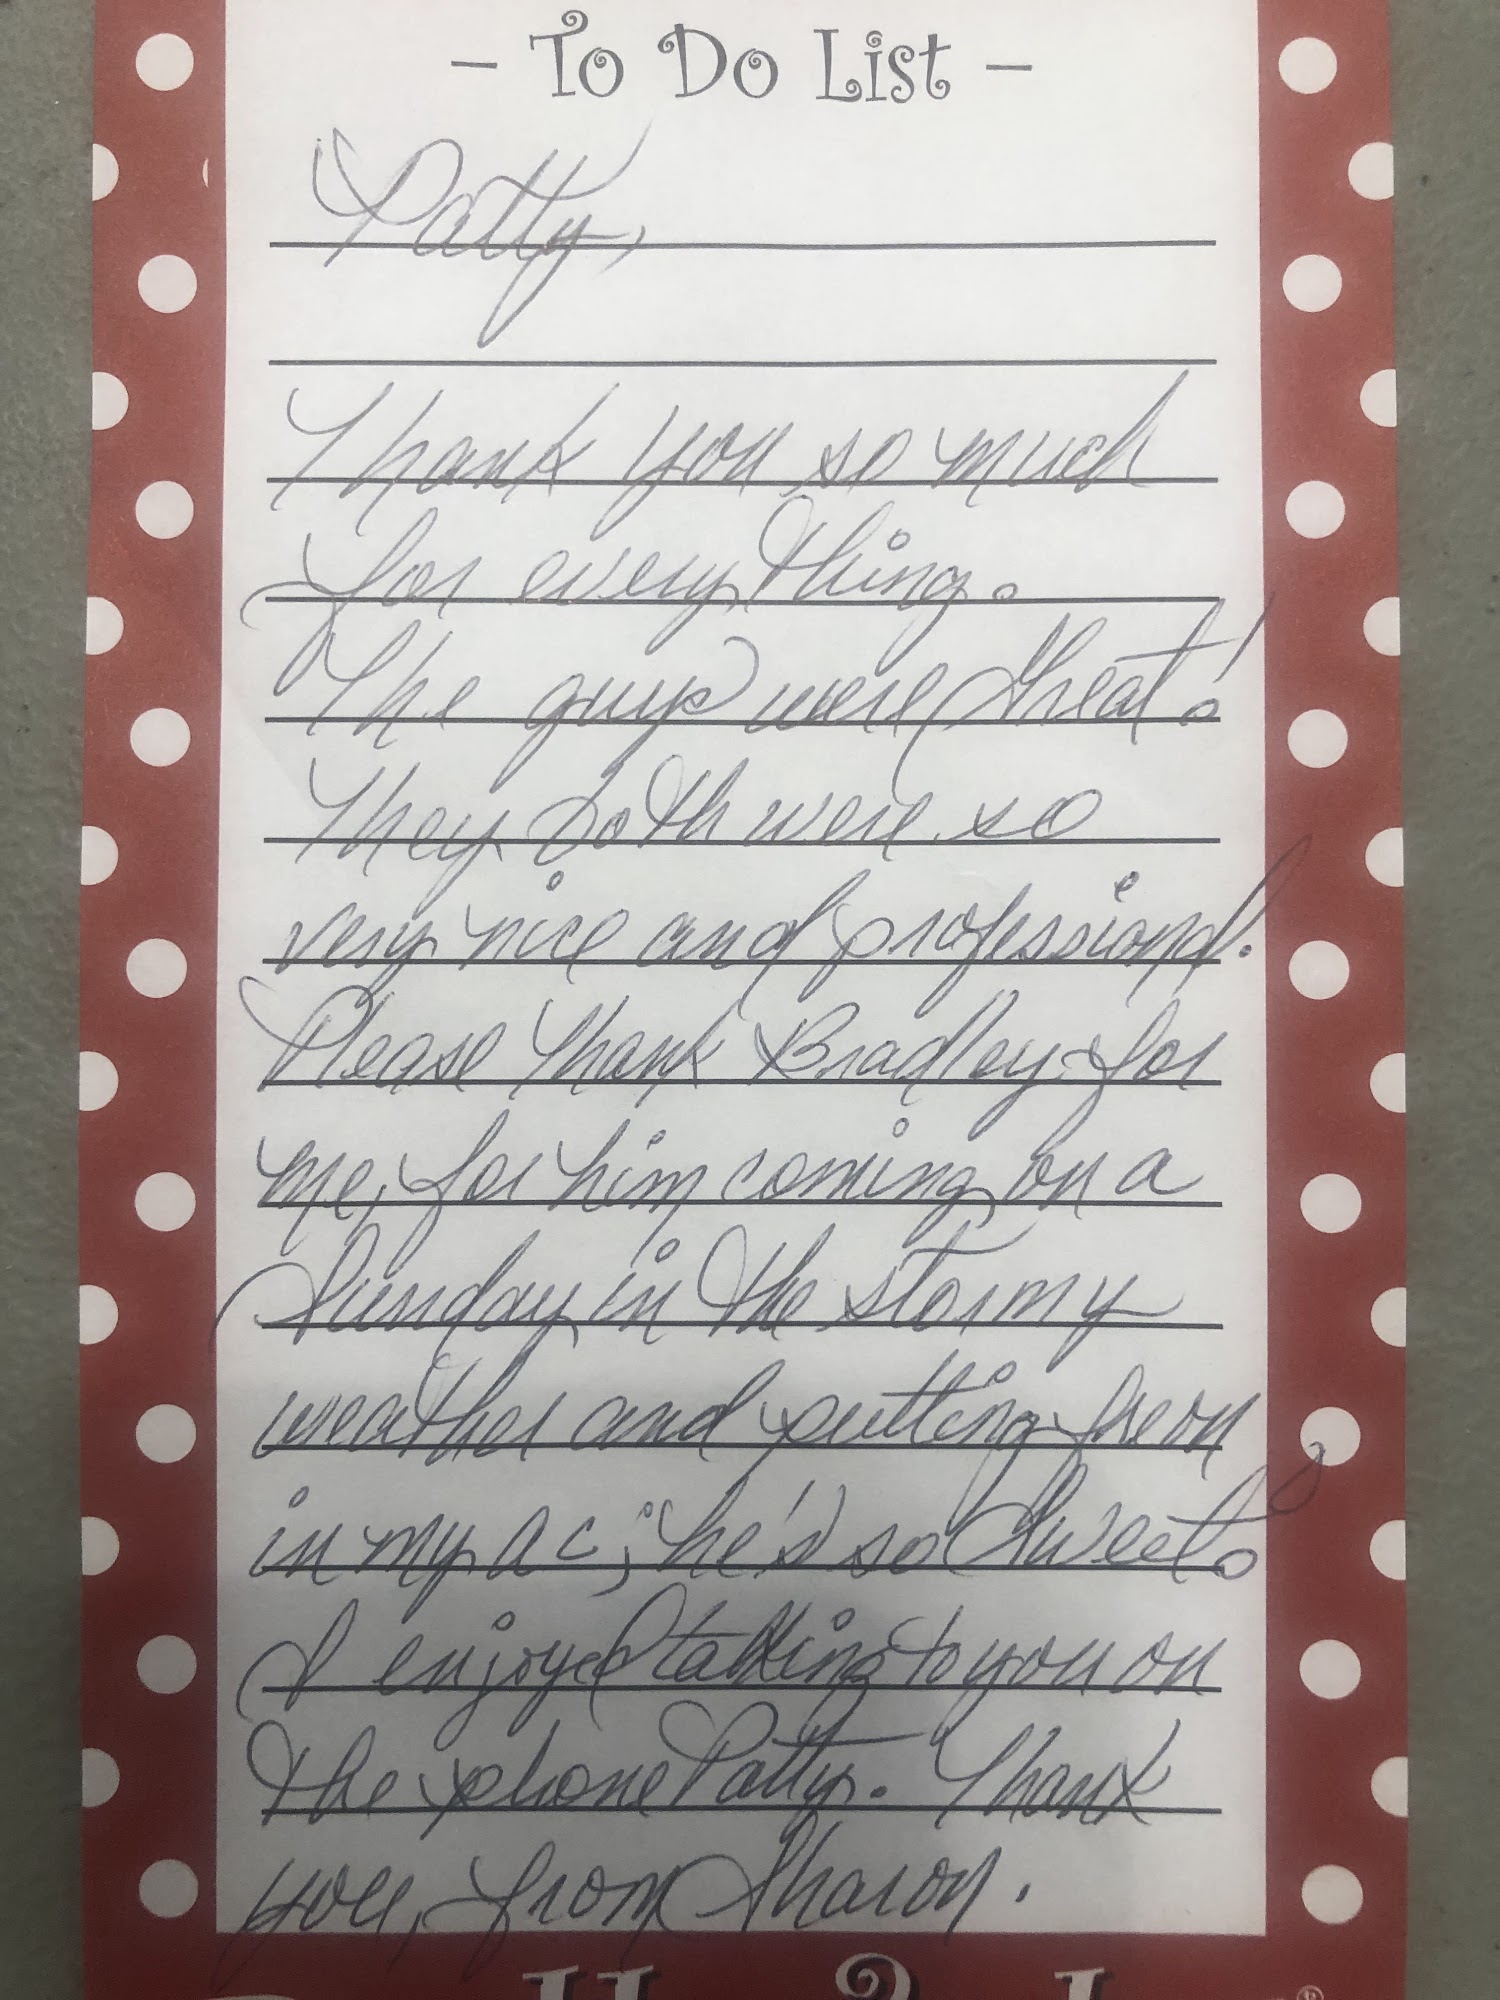 - To Do List -
Patty,
Thank you so much
for everything.
The guys were Great!
They both were so
very nice and professional.
Please thank Bradley for
me, for him coming on a
Sunday in the stormy
weather and putting freon
in my AC; he's so Sweet!
I enjoyed talking to you on
the phone Patty. Thank
you, from Sharon.